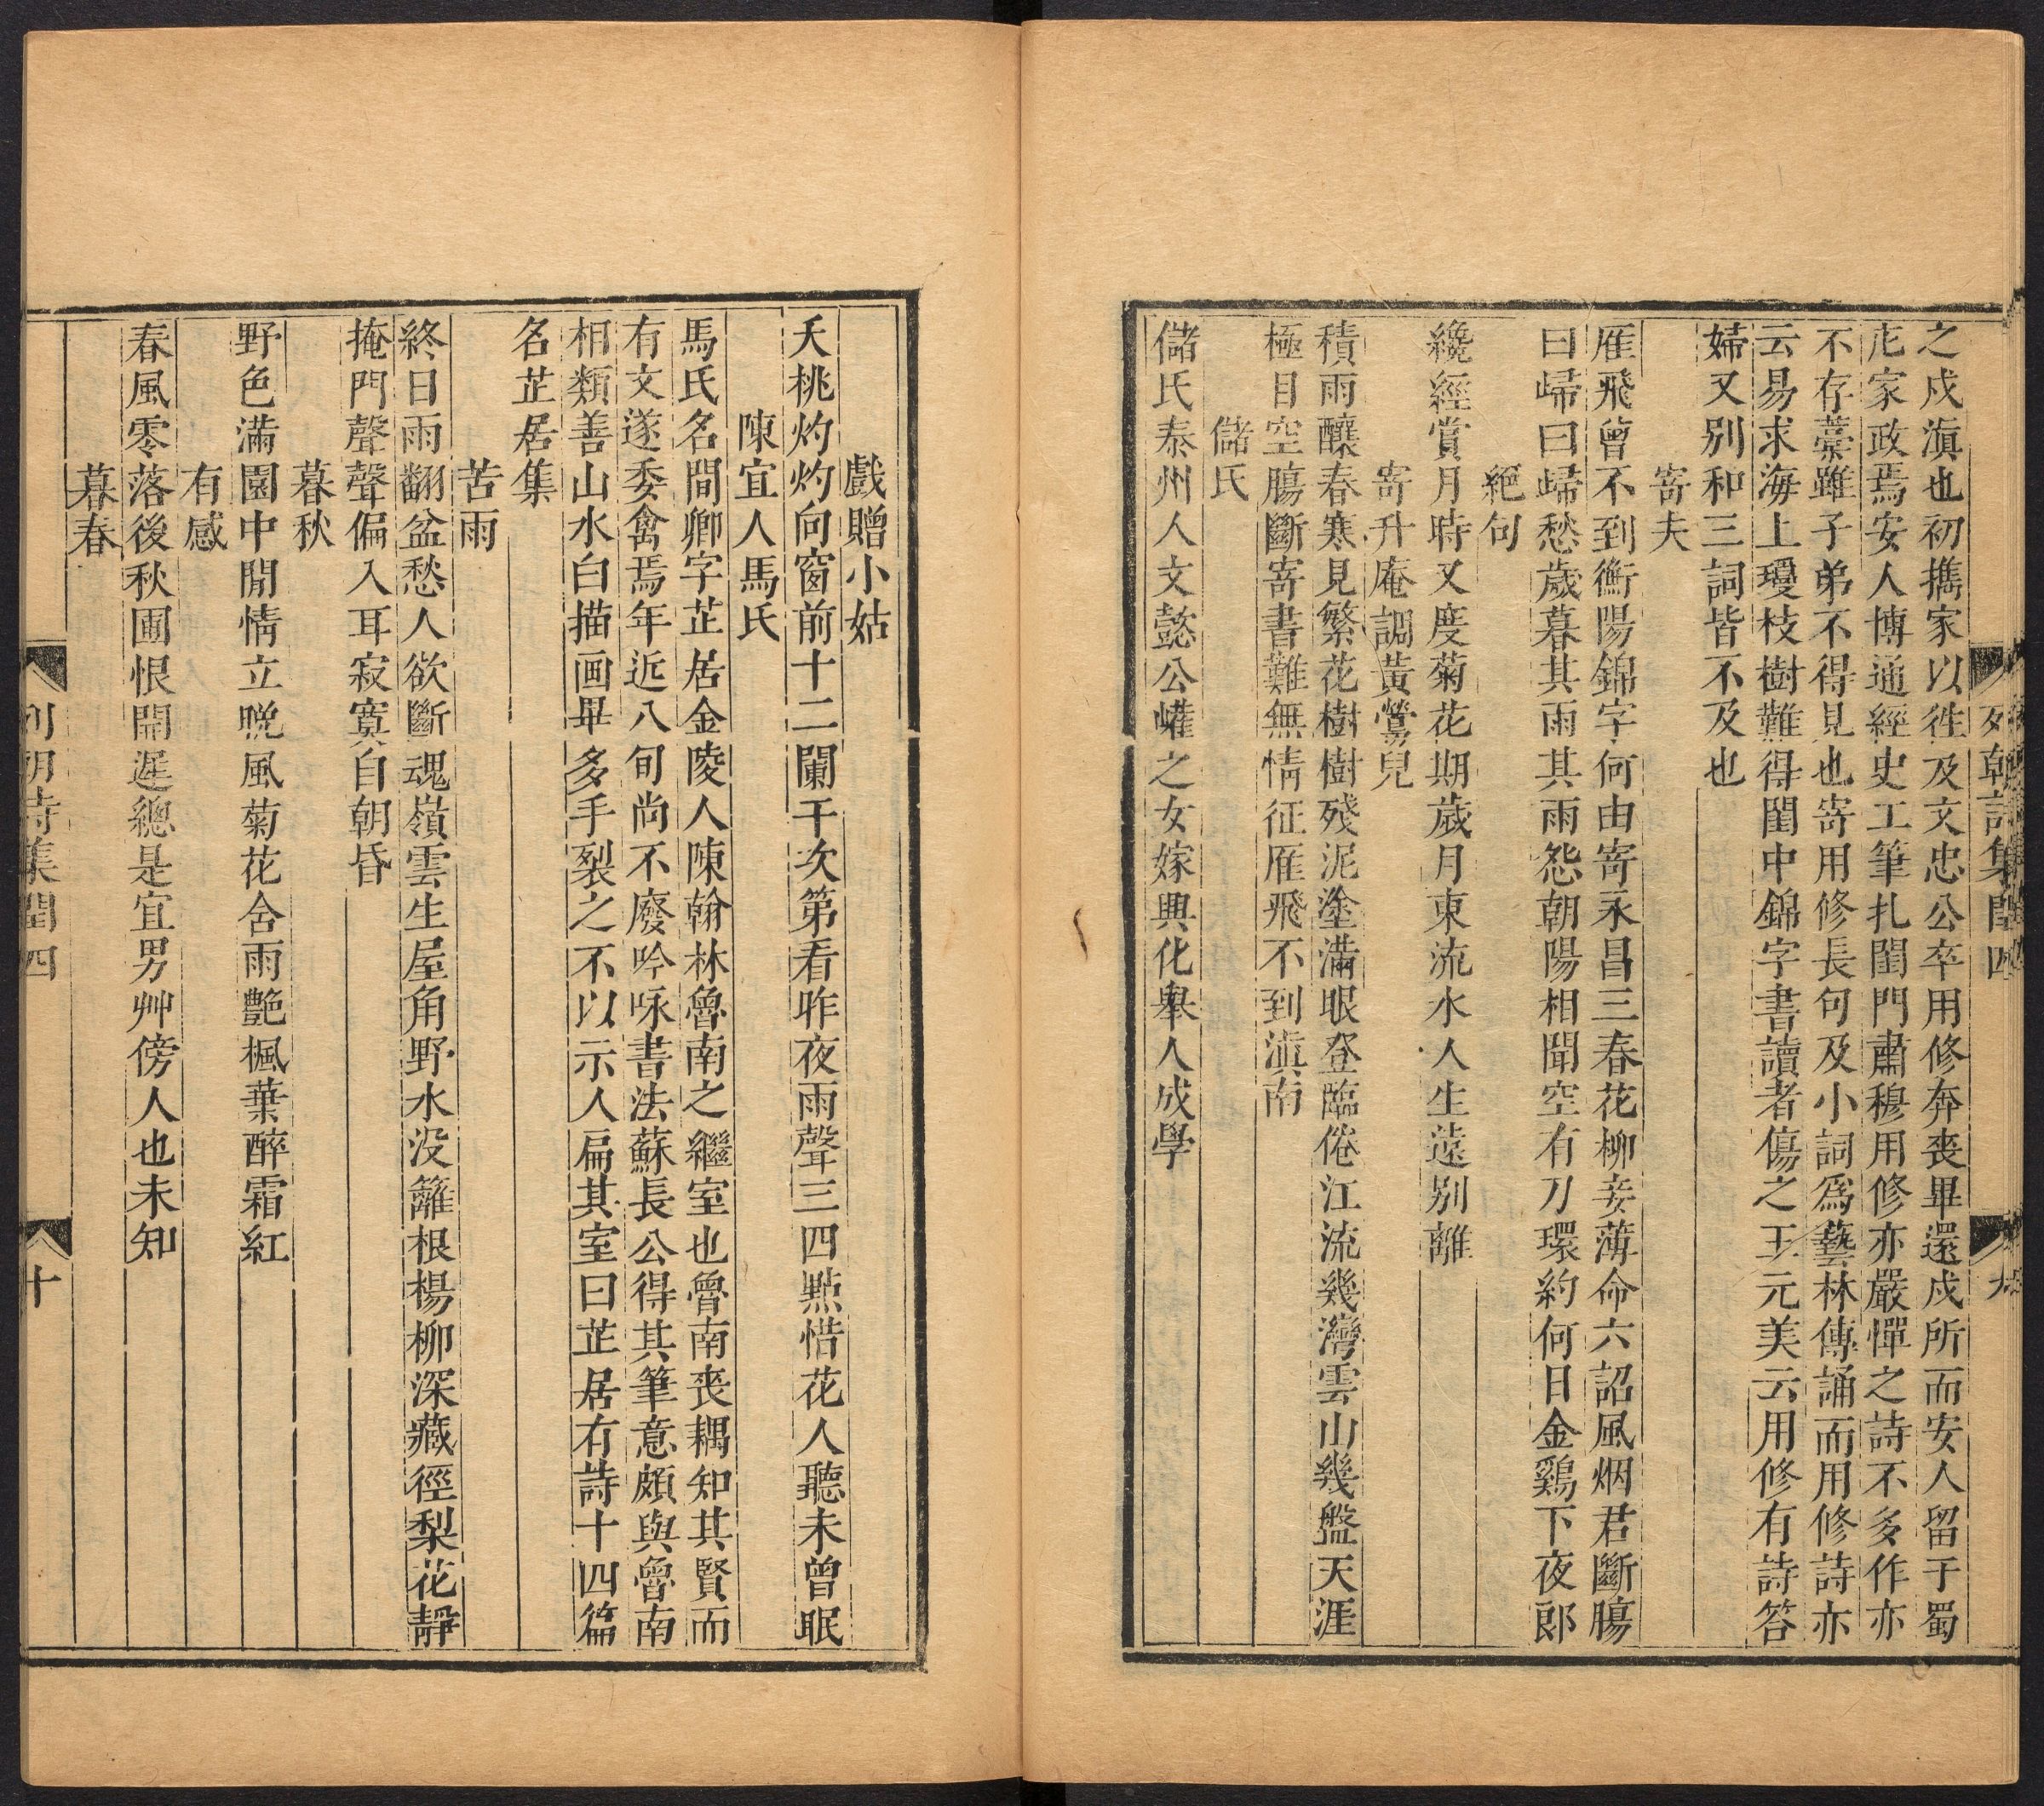 列朝詩集閏四
九
之戍滇也初攜家以徃及文忠公卒用修奔喪畢還戍所而安人留于蜀
庀家政焉安人博通經史工筆扎閨門肅穆用修亦嚴憚之詩不多作亦
不存藁雖子弟不得見也寄用修長句及小詞爲藝林傳誦而用修詩亦
云易求海上瓊枝樹難得閨中錦字書讀者傷之王元美云用修有詩答
婦又别和三詞皆不及也
寄夫
雁飛曾不到衡陽錦字何由寄永昌三春花柳妾薄命六詔風烟君斷腸
曰歸曰歸愁歲暮其雨其雨怨朝陽相聞空有刀環約何日金鷄下夜郎
絕句
纔經賞月時又度菊花期歲月東流水人生遠别離
寄升庵調黃鶯兒
積雨釀春寒見繁花樹樹殘泥塗滿眼登臨倦江流幾灣雲山幾盤天涯
極目空腸斷寄書難無情征雁飛不到滇南
儲氏
儲氏泰州人文懿公巏之女嫁興化舉人成學
戲贈小姑
夭桃灼灼向窗前十二闌干次第看昨夜雨聲三四點惜花人聽未曾眠
陳宜人馬氏
馬氏名閒卿字芷居金陵人陳翰林魯南之繼室也魯南喪耦知其賢而
有文遂委禽焉年近八旬尚不廢吟咏書法蘇長公得其筆意頗與魯南
相類善山水白描画畢多手裂之不以示人扁其室曰芷居有詩十四篇
名芷居集
苦雨
終日雨翻盆愁人欲斷魂嶺雲生屋角野水没籬根楊柳深藏徑梨花靜
掩門聲聲偏入耳寂寞自朝昏
暮秋
野色滿園中閒情立晚風菊花含雨艶楓葉醉霜紅
有感
春風零落後秋圃恨開遲總是宜男艸傍人也未知
暮春
列朝詩集閏四
十